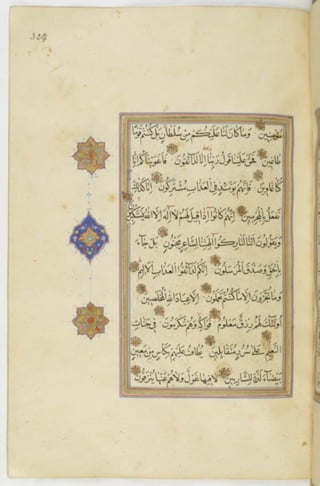 324
مؤمنين وما كان لنا عليكم من سلطان بل كنتم قوما
طاغين فحق علينا قول ربنا انا لذائقون فاغويناكم انا
كنا غاوين فانهم يومئذ في العذاب مشتركون انا كذلك
نفعل بالمجرمين انهم كانوا اذا قيل لهم لا اله الا الله يستكبرون
ويقولون ائنا لتاركوا الهتنا لشاعر مجنون بل جاء
بالحق وصدق المرسلين انكم لذائقوا العذاب الاليم
وما تجزون الا ما كنتم تعملون الا عباد الله المخلصين
اولئك لهم رزق معلوم فواكه وهم مكرمون في جنات
النعيم على سرر متقابلين يطاف عليهم بكاس من معين
بيضاء لذة للشاربين لا فيها غول ولا هم عنها ينزفون